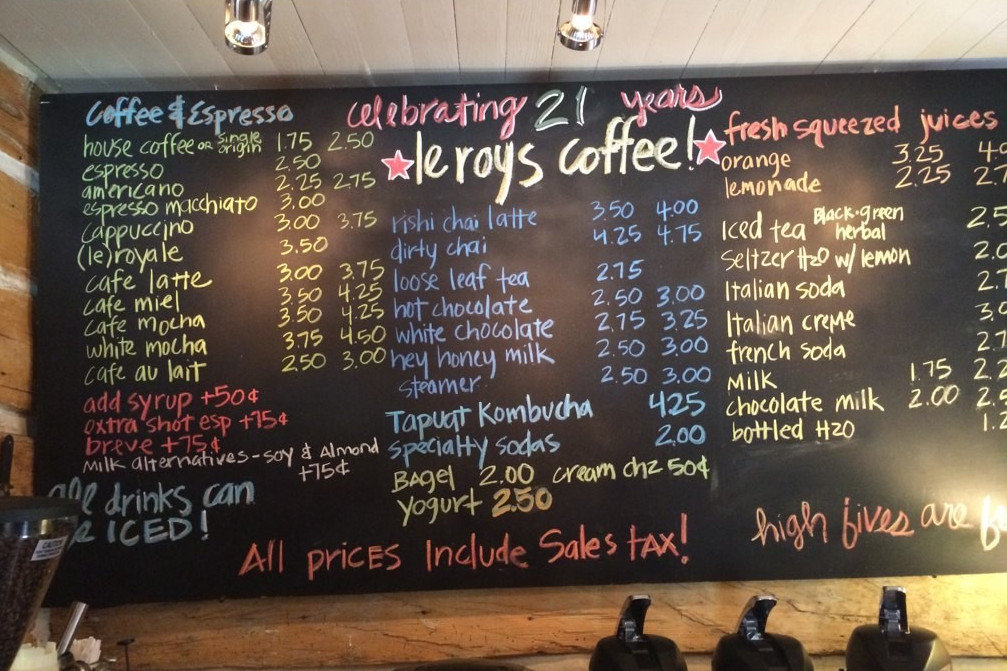 Coffee & Espresso
house coffee or single origin 1.75 2.50
espresso 2.50
americano 2.25 2.75
espresso macchiato 3.00
cappuccino 3.00 3.75
(le)royale 3.50
cafe latte 3.00 3.75
cafe miel 3.50 4.25
cafe mocha 3.50 4.25
white mocha 3.75 4.50
cafe au lait 2.50 3.00
add syrup +50¢
extra shot esp +75¢
breve +75¢
Milk alternatives-soy & Almond
+75¢
drinks can
ICED!
celebrating 21 years
le roys coffee!
rishi chai latte 3.50 4.00
dirty chai 4.25 4.75
loose leaf tea 2.75
hot chocolate 2.50 3.00
white chocolate 2.75 3.25
hey honey milk 2.50 3.00
steamer 2.50 3.00
Kombucha 4.25
specialty sodas 2.00
Bagel 2.00 cream chz 50¢
Yogurt 2.50
fresh squeezed juices
orange 3.25
lemonade 2.25
Iced tea Black·green
herbal
Seltzer H2O w/ lemon
Italian soda
Italian creme
french soda
Milk 1.75
chocolate milk 2.00
bottled H2O
All prices Include Sales tax!
high fives are
CAUTION